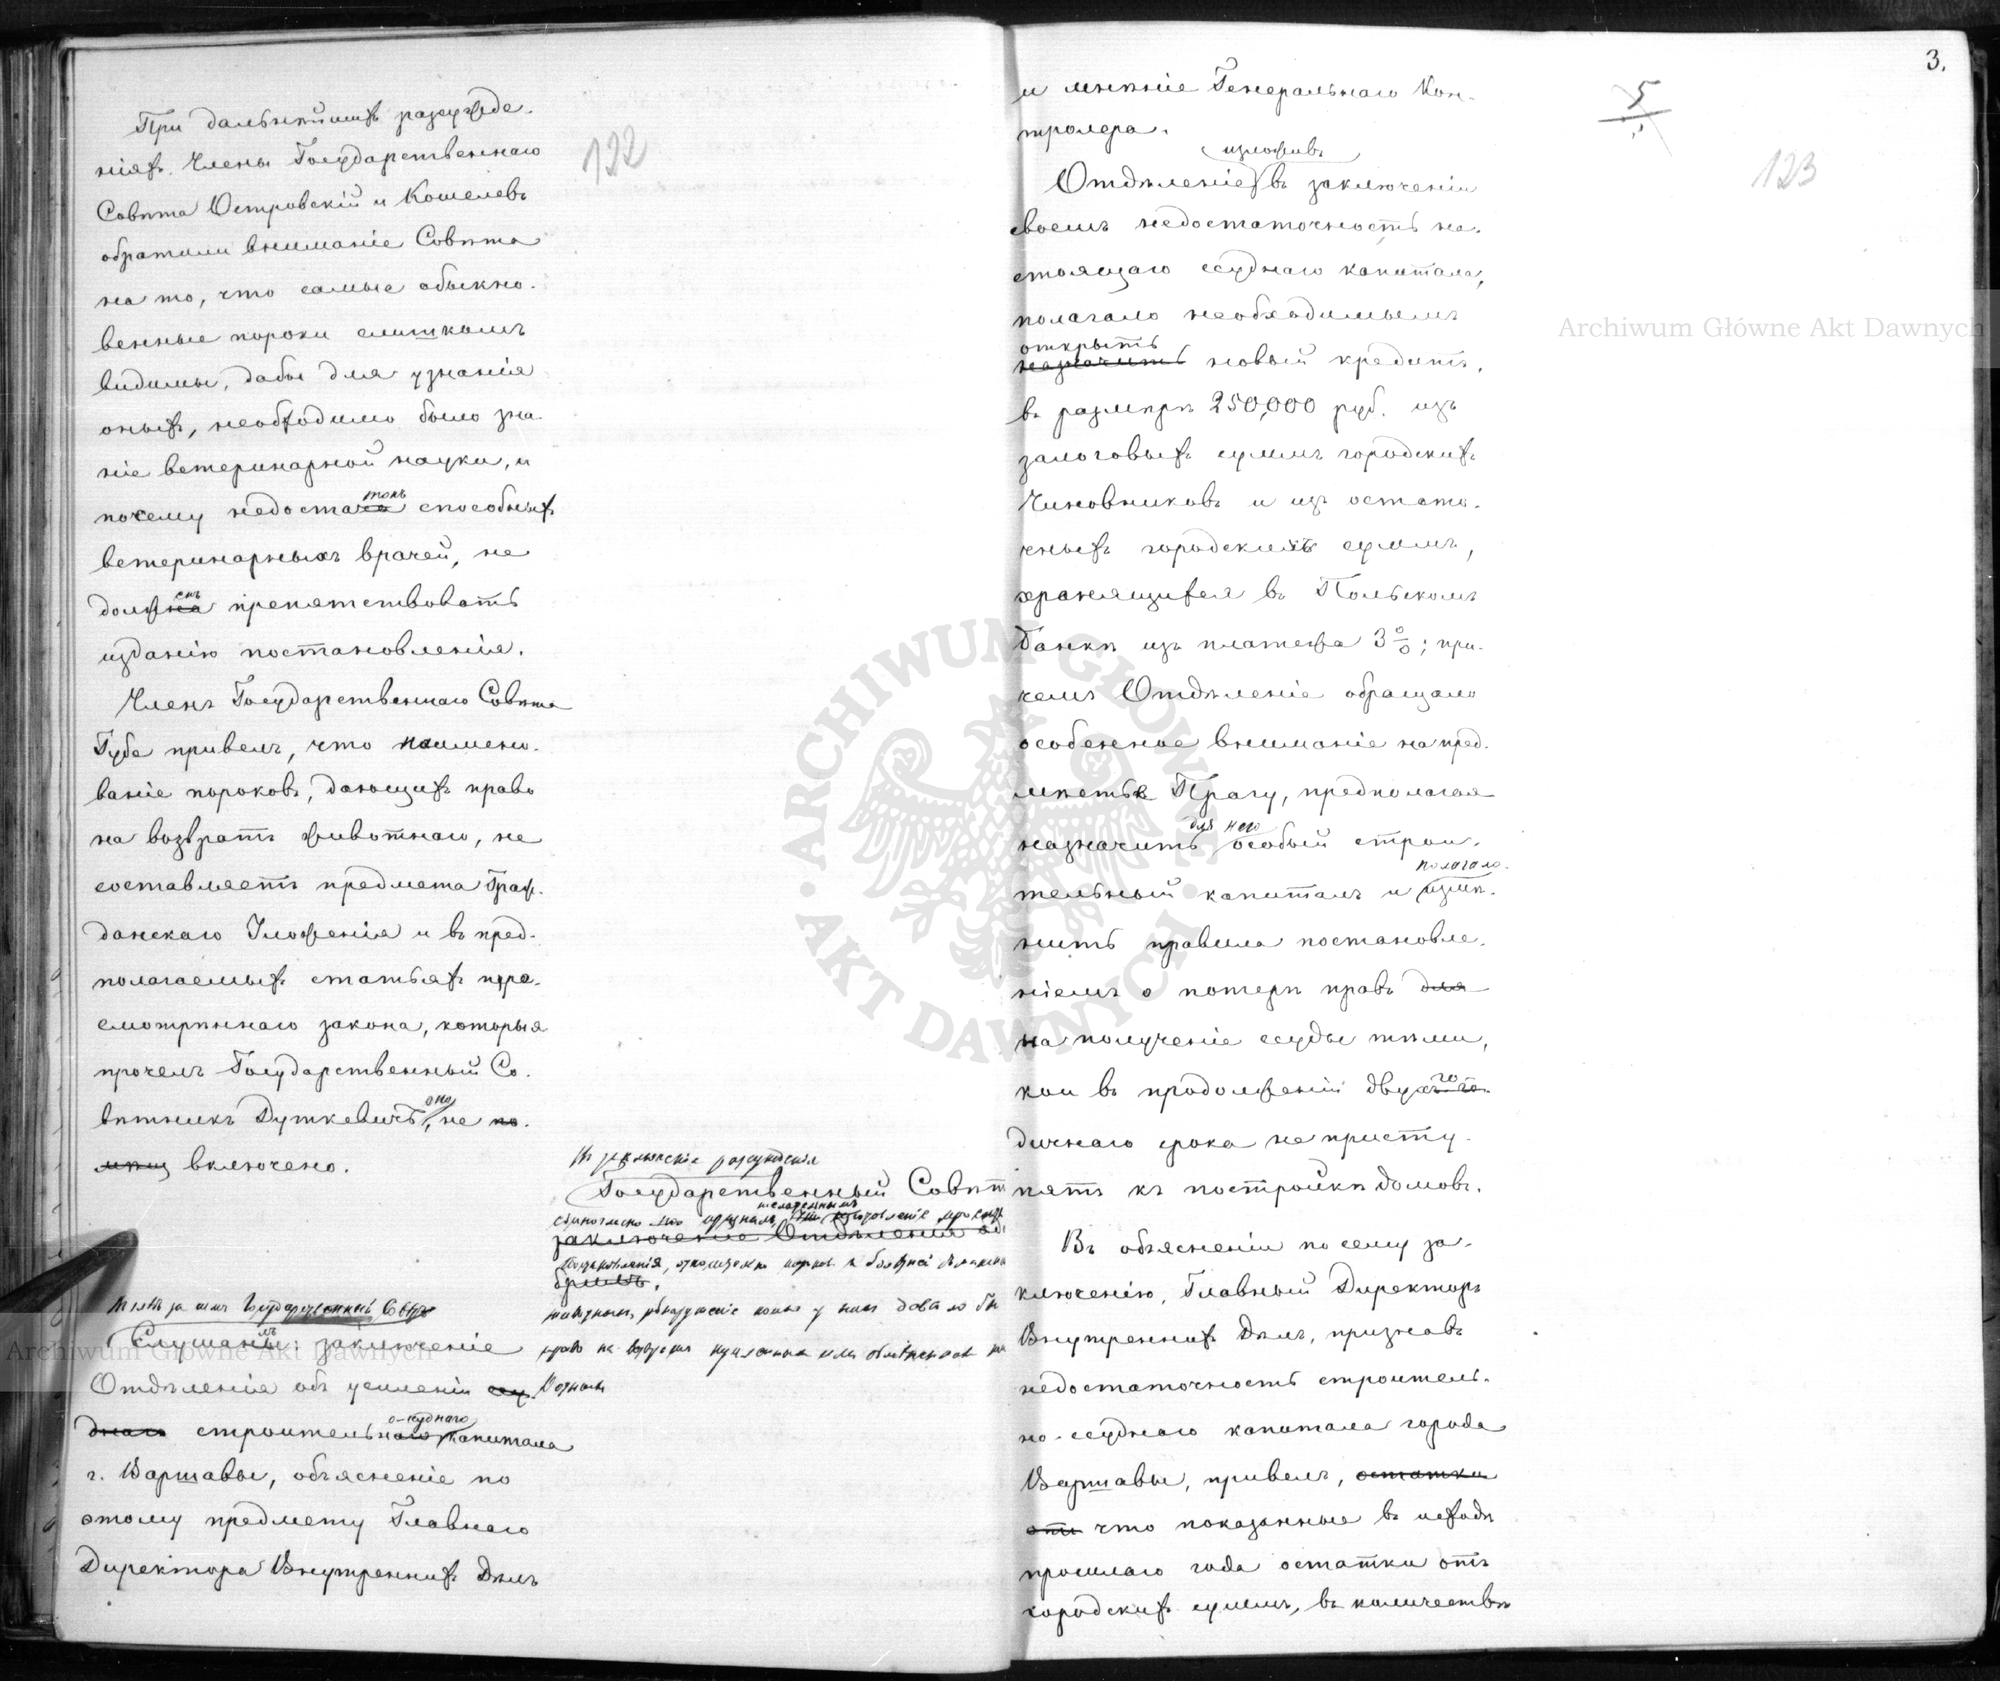 При дальнѣйшихъ разсужде-
ніяхъ Члены Государственнаго
Совѣта Островскій и Кошелевъ
обратили вниманіе Совѣта
на то, что самые обыкно-
венные пороки слишкомъ
видимы, дабы для узнанія
оныхъ, необходимо было зна-
ніе ветеринарной науки, и
токъ
почему недостача способныхъ
ветеринарныхъ врачей, не
енъ
должна препятствовать
изданію постановленія.
Членъ Государственнаго Совѣта
Губе привелъ, что поимено-
ваніе пороковъ, дающихъ право
на возвратъ животнаго, не
составляетъ предмета Граж-
данскаго Уложенія и въ пред-
полагаемыхъ статьяхъ пере-
смотрѣннаго закона, которыя
прочелъ Государственный Со-
оно
вѣтникъ Дуткевичъ, не по-
мѣщ включено.
122
Въ заключеніе разсужденія
Государственный Совѣтъ
единогласно
заключеніе Отдѣленія
Государственный Совѣтъ
лъ
Слушаны: заключеніе
Отдѣленія объ усиленіи ссу-
днаго строительнаго капитала
о-ссуднаго
г. Варшавы, объясненіе по
этому предмету Главнаго
Директора Внутреннихъ Дѣлъ
3.
5
123
и мнѣніе Генеральнаго Кон-
тролера.
изложивъ
Отдѣленіе въ заключеніи
своемъ недостаточность на-
стоящаго ссуднаго капитала,
полагало необходимымъ
открыть
назначить новый кредитъ,
въ размѣрѣ 250,000 руб. изъ
залоговыхъ суммъ городскихъ
Чиновниковъ и изъ остато-
чныхъ городскихъ суммъ,
хранящихся въ Польскомъ
Банкѣ изъ платежа 3%; при-
чемъ Отдѣленіе обращало
особенное вниманіе на пред-
мѣстье Прагу, предполагая
для него
назначить особый строи-
полагало
тельный капиталъ и измѣ-
нить правила постановле-
ніемъ о потерѣ правъ для
на получение ссуды тѣми,
кои въ продолженіи двухъ го-
дичнаго срока не присту-
пятъ къ постройкѣ домовъ.
Въ объясненіи по сему за-
ключенію, Главный Директоръ
Внутреннихъ Дѣлъ, признавъ
недостаточность строитель-
но-ссуднаго капитала города
Варшавы, привелъ, остатки
отъ что показанные въ исходѣ
прошлаго года остатки отъ
городскихъ суммъ, въ количествѣ
Archiwum Główne Akt Dawnych
Archiwum Główne Akt Dawnych
ARCHIWUM GŁÓWNE AKT DAWNYCH